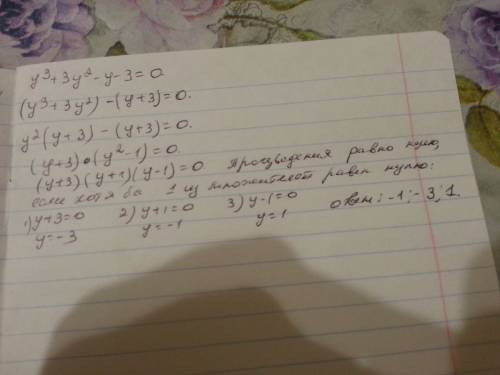 y³+3y²-y-3=0.
(y³+3y²)-(y+3)=0.
y²(y+3)-(y+3)=0.
(y+3)•(y²-1)=0.
(y+3)(y+1)(y-1)=0 Произведения равно нулю,
если хотя бы 1 из множителей равен нулю:
1) y+3=0 2) y+1=0 3) y-1=0 Ответ: -1; -3; 1.
y=-3 y=-1 y=1